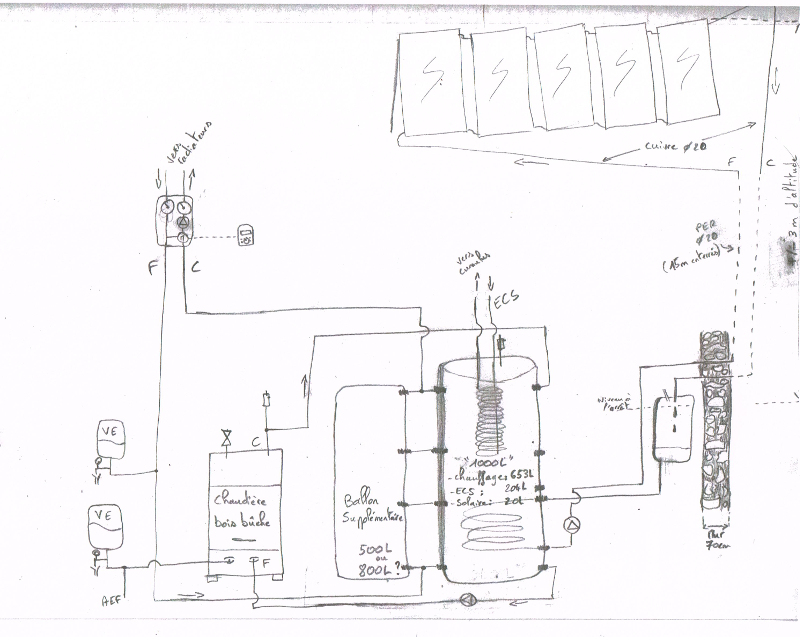 cuivre ø20
F
C
+/- 3 m d'altitude
vers
radiateurs
PER
ø20
(15m enterrés)
F
C
vers
ECS
Niveau à
l'arrêt
VE
C
"1000L"
- chauffage: 653L
- ECS:
- Solaire: 20L
Chaudière
bois bûche
Ballon
Supplémentaire
VE
500L
ou
800L?
F
Mur
70cm
AEF